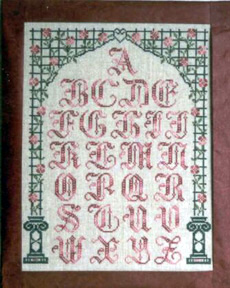 A
BCDE
FGHIJ
KLMN
OPQR
STUV
WXYZ